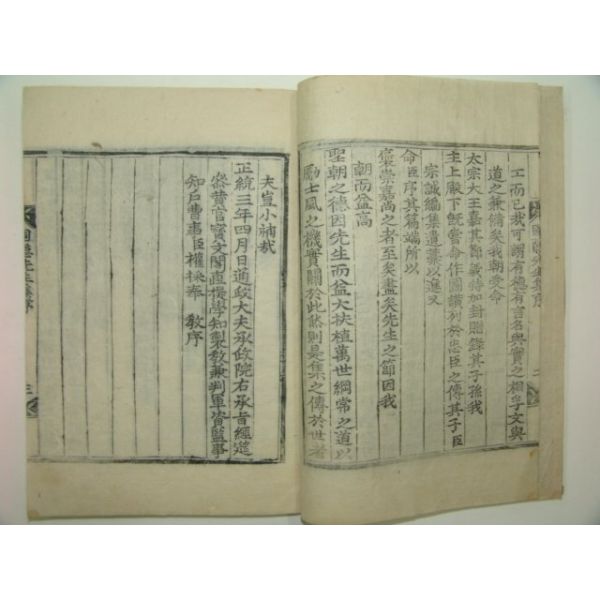 圃隱先生集序 二
工而已哉可謂有德有言名與實之相孚文與
道之兼備矣我朝受命
太宗大王嘉其節義特加封贈錄其子孫我
主上殿下旣嘗命作圖讃列於忠臣之傳其子臣
宗誠編集遺藁以進又
命臣序其篇端所以
褒崇嘉尙之者至矣盡矣先生之節因我
朝而益高
聖朝之德因先生而益大扶植萬世綱常之道以
勵士風之機實關於此然則是集之傳於世者
夫豈小補哉
正統三年四月日通政大夫承政院右承旨經筵
叅贊官寶文閣直提學知製敎兼判軍資監事
知戶曹事臣權採奉 敎序
圃隱先生集序 三